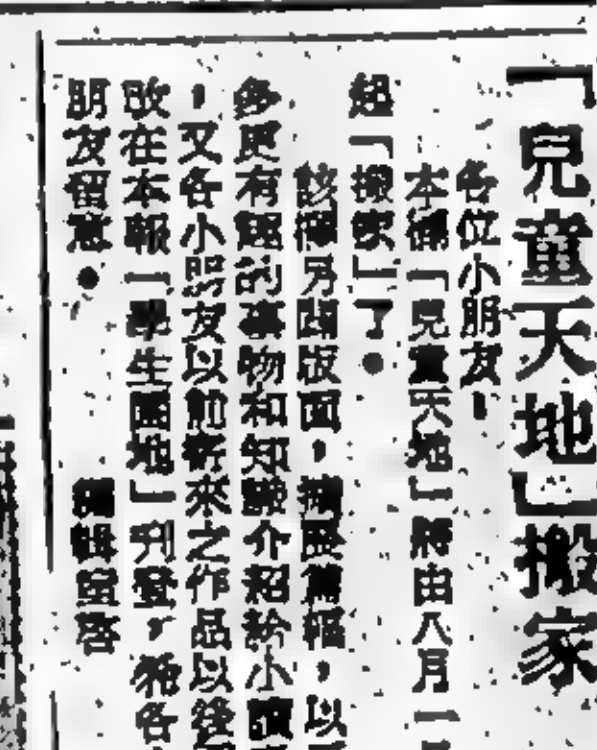 「兒童天地」搬家
各位小朋友，
本欄「兒童天地」將由八月一
起「搬家」了。
該欄另闢版面，擴張篇幅，以
多更有趣的事物和知識介紹給小讀
，又各小朋友以前寄來之作品以後
改在本報「學生園地」刊登，祈各
朋友留意。
編輯室啓